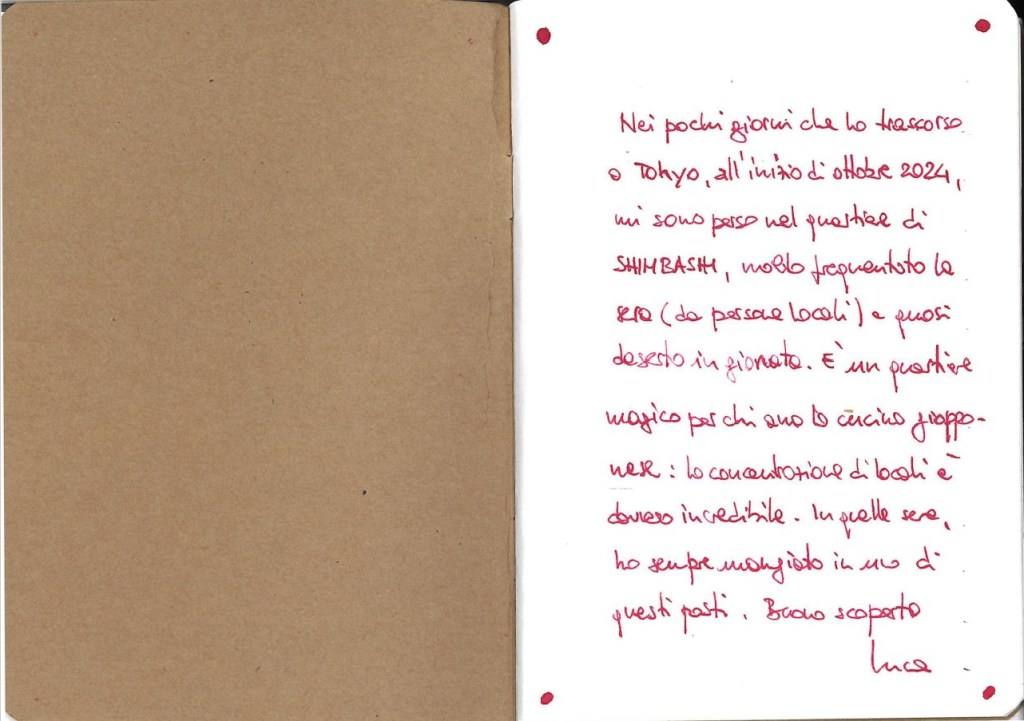 Nei pochi giorni che ho trascorso
a Tokyo, all'inizio di ottobre 2024,
mi sono perso nel quartiere di
SHIMBASHI, molto frequentato la
sera (da persone locali) e quasi
deserto in giornata. È un quartiere
magico per chi ama la cucina giappo-
nese: la concentrazione di locali è
davvero incredibile. In quelle sere,
ho sempre mangiato in uno di
questi posti. Buona scoperta
Luca